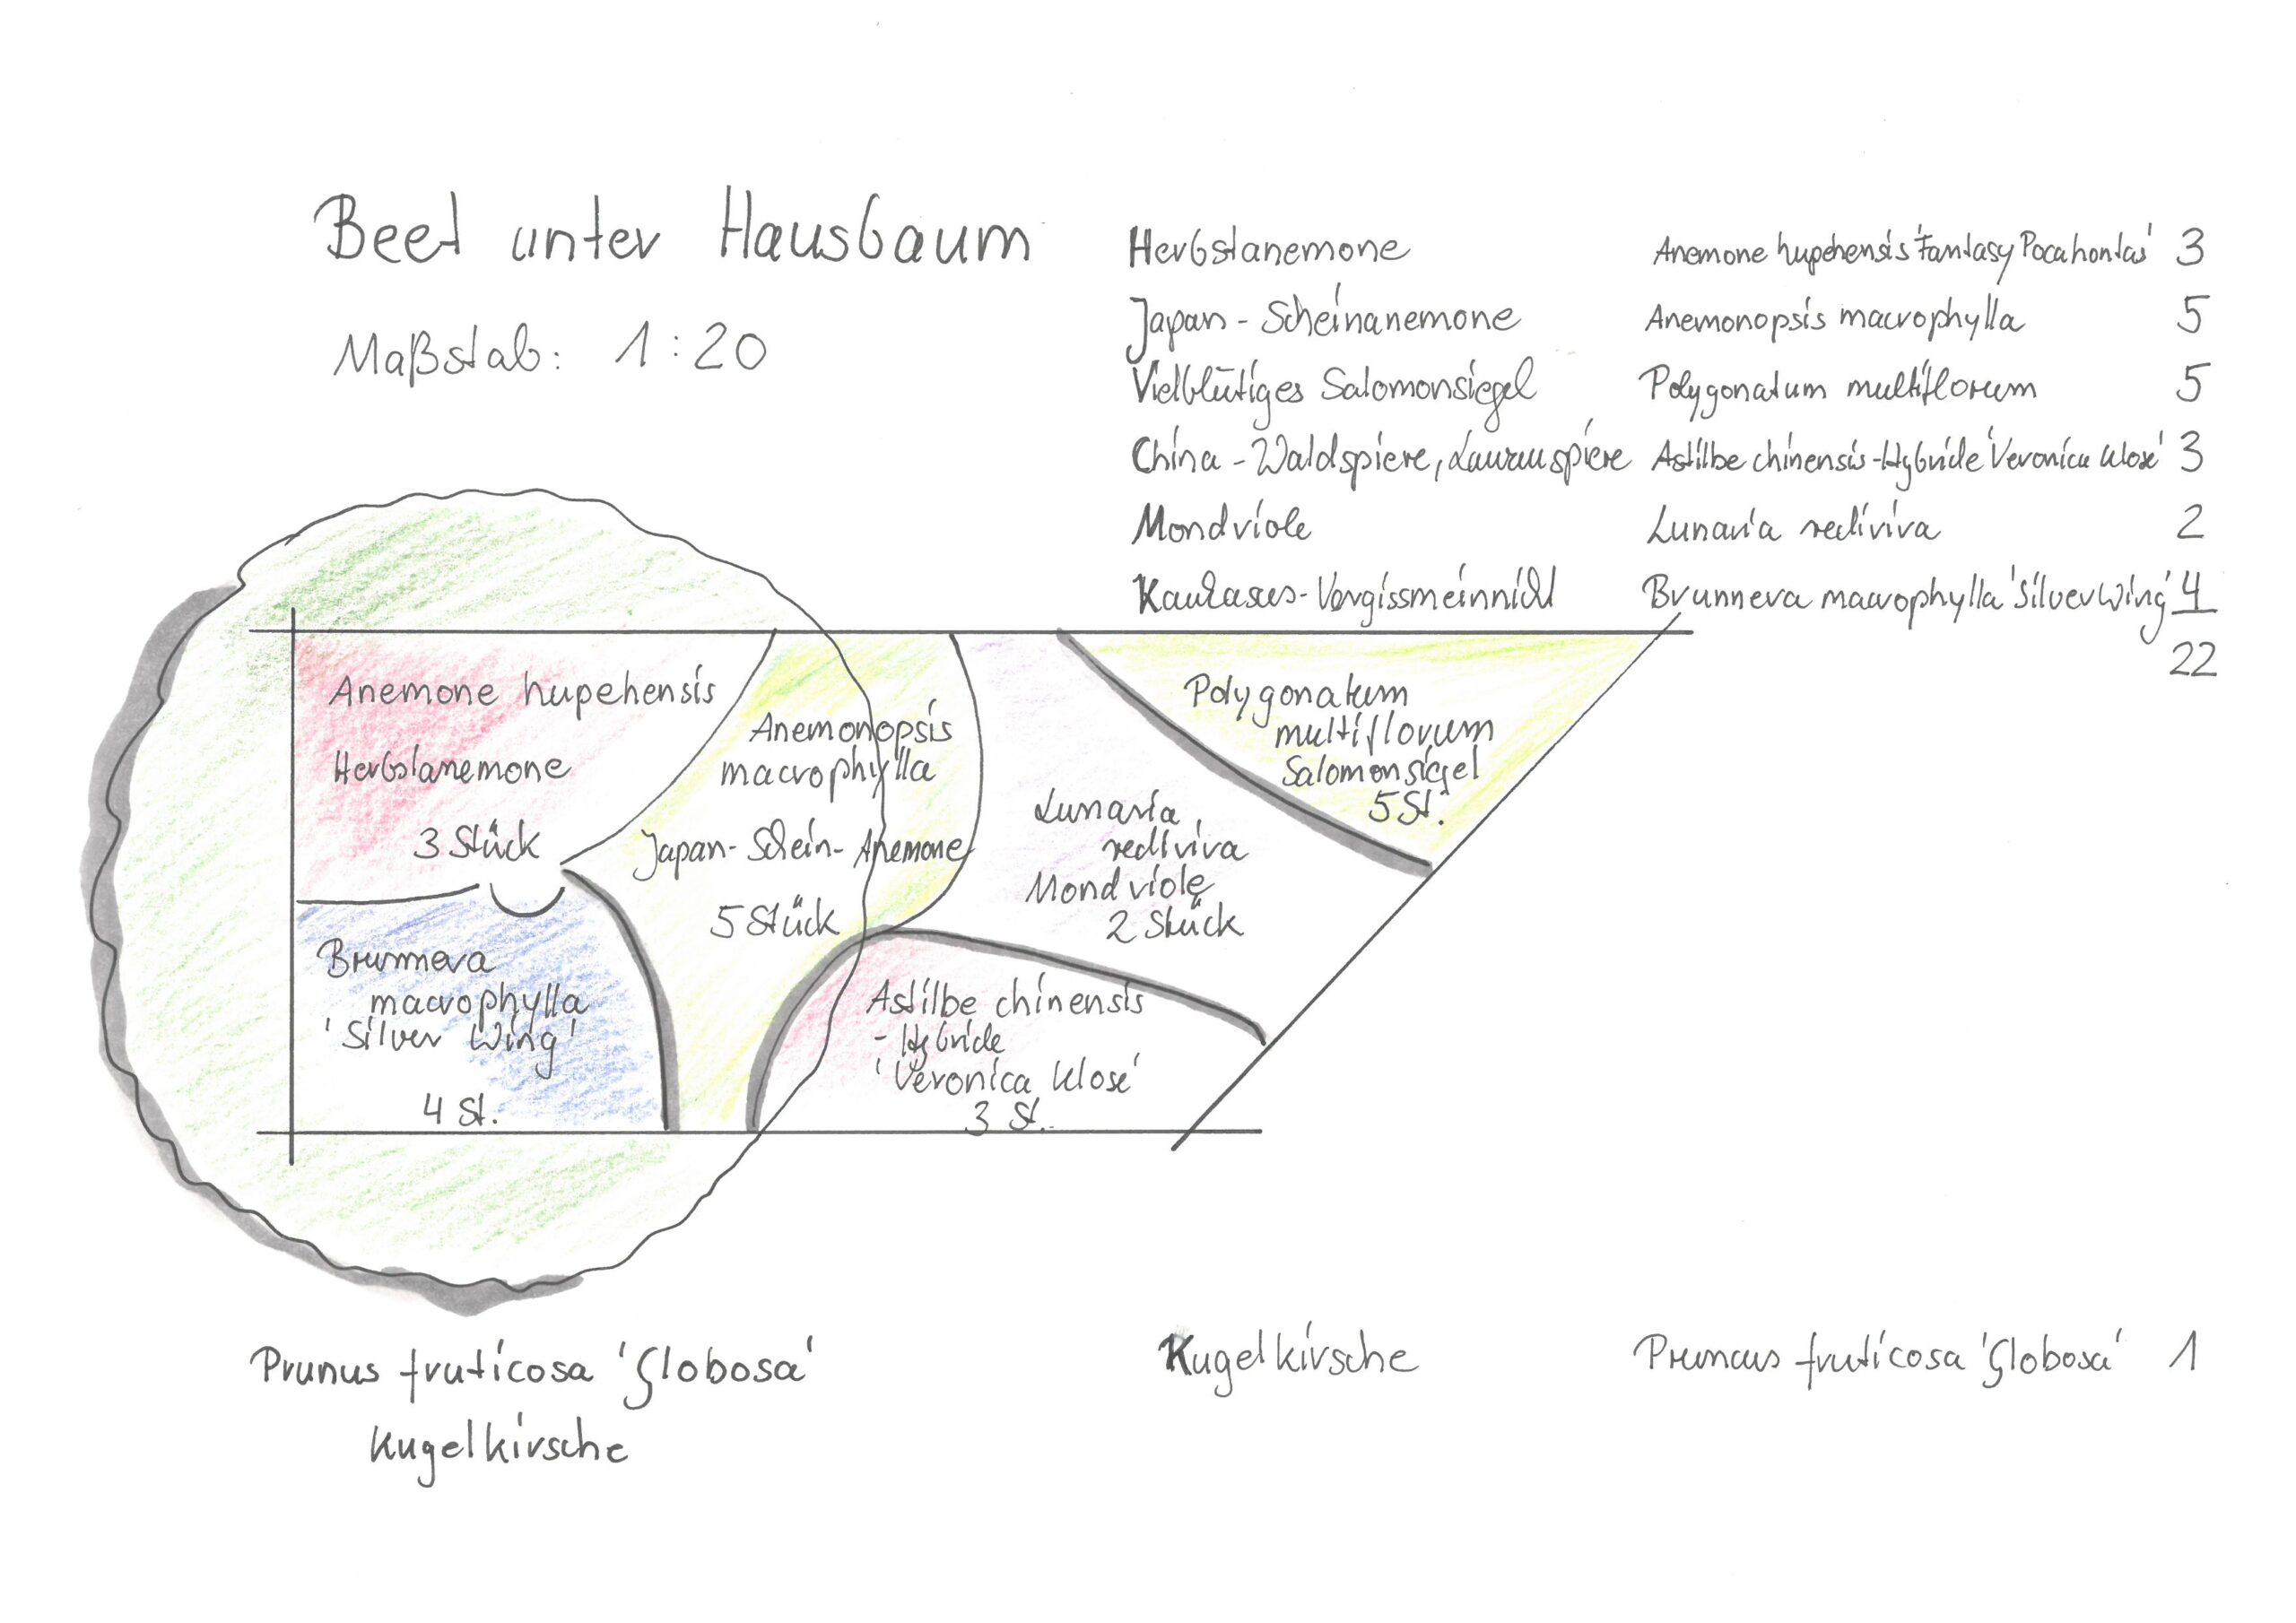 Beet unter Hausbaum
Maßstab: 1:20
Herbstanemone Anemone hupehensis 'Fantasy Pocahontas' 3
Japan-Scheinanemone Anemonopsis macrophylla 5
Vielblütiges Salomonsiegel Polygonatum multiflorum 5
China-Waldspiere, Astilbe chinensis-Hybride 'Veronica Klose' 3
Mondviole Lunaria rediviva 2
Kaukasus-Vergissmeinnicht Brunnera macrophylla 'Silver Wing' 4
22
Anemone hupehensis
Herbstanemone
3 Stück
Anemonopsis
macrophylla
Japan-Schein-Anemone
5 Stück
Polygonatum
multiflorum
Salomonsiegel
5 St.
Lunaria
rediviva
Mondviole
2 Stück
Brunnera
macrophylla
'Silver Wing'
4 St.
Astilbe chinensis
-Hybride
'Veronica Klose'
3 St.
Prunus fruticosa 'Globosa'
Kugelkirsche
Kugelkirsche Prunus fruticosa 'Globosa' 1